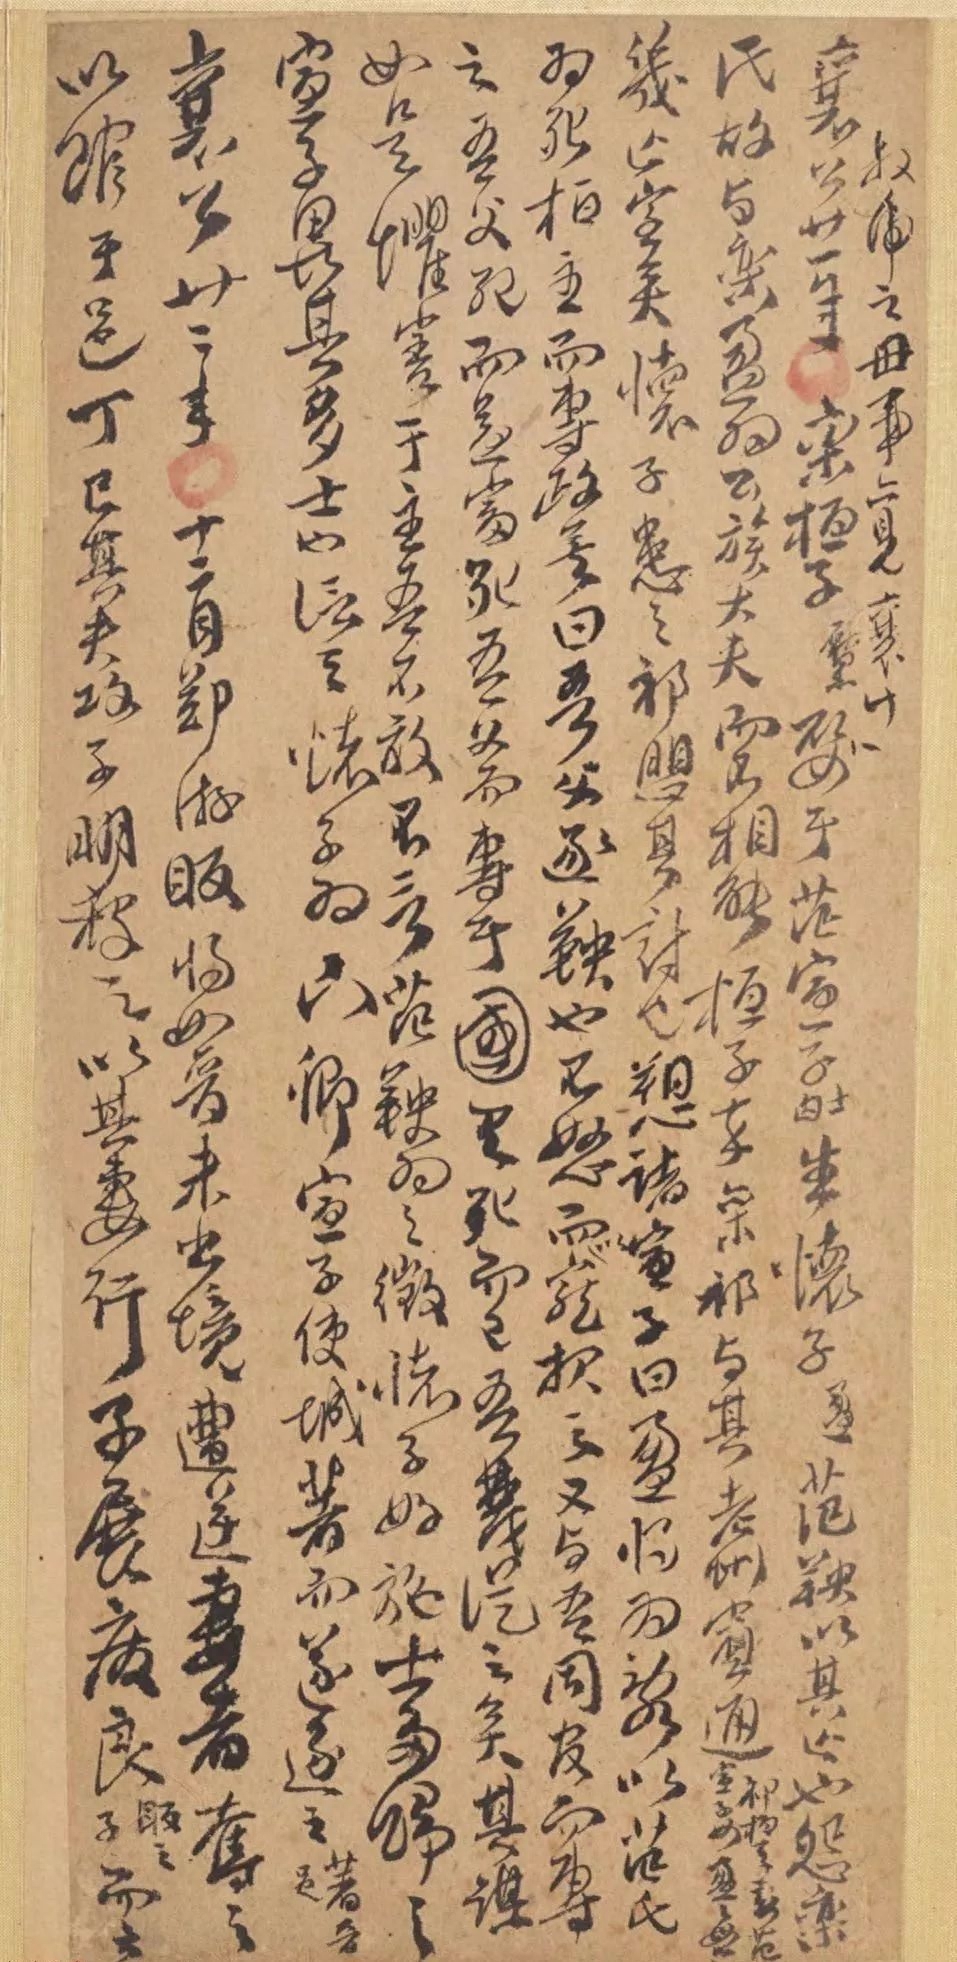 叔虎之母事亦見襄廿一
襄公廿一年欒桓子黶娶于范宣子生懷子盈范鞅以其亡也怨欒
氏故与欒盈为公族大夫而不相能桓子卒欒祁与其老州賓通
幾亡室矣懷子患之祁懼其討也愬諸宣子曰盈将为亂以范氏
为死桓主而專政矣曰吾父逐鞅也不怒而以寵报之又与吾同官而專
之吾父死而益富死吾父而專于國有死而已吾蔑從之矣其謀
如是懼害于主吾不敢不言范鞅为之徵懷子好施士多歸之
宣子畏其多士也信之懷子为下卿宣子使城著而遂逐之 著晉邑
襄公廿二年十二月鄭游眅将如晉未出境遭逆妻者奪之
以館于邑丁巳其夫攻子明殺之以其妻行子展廢良 眅之子 而立